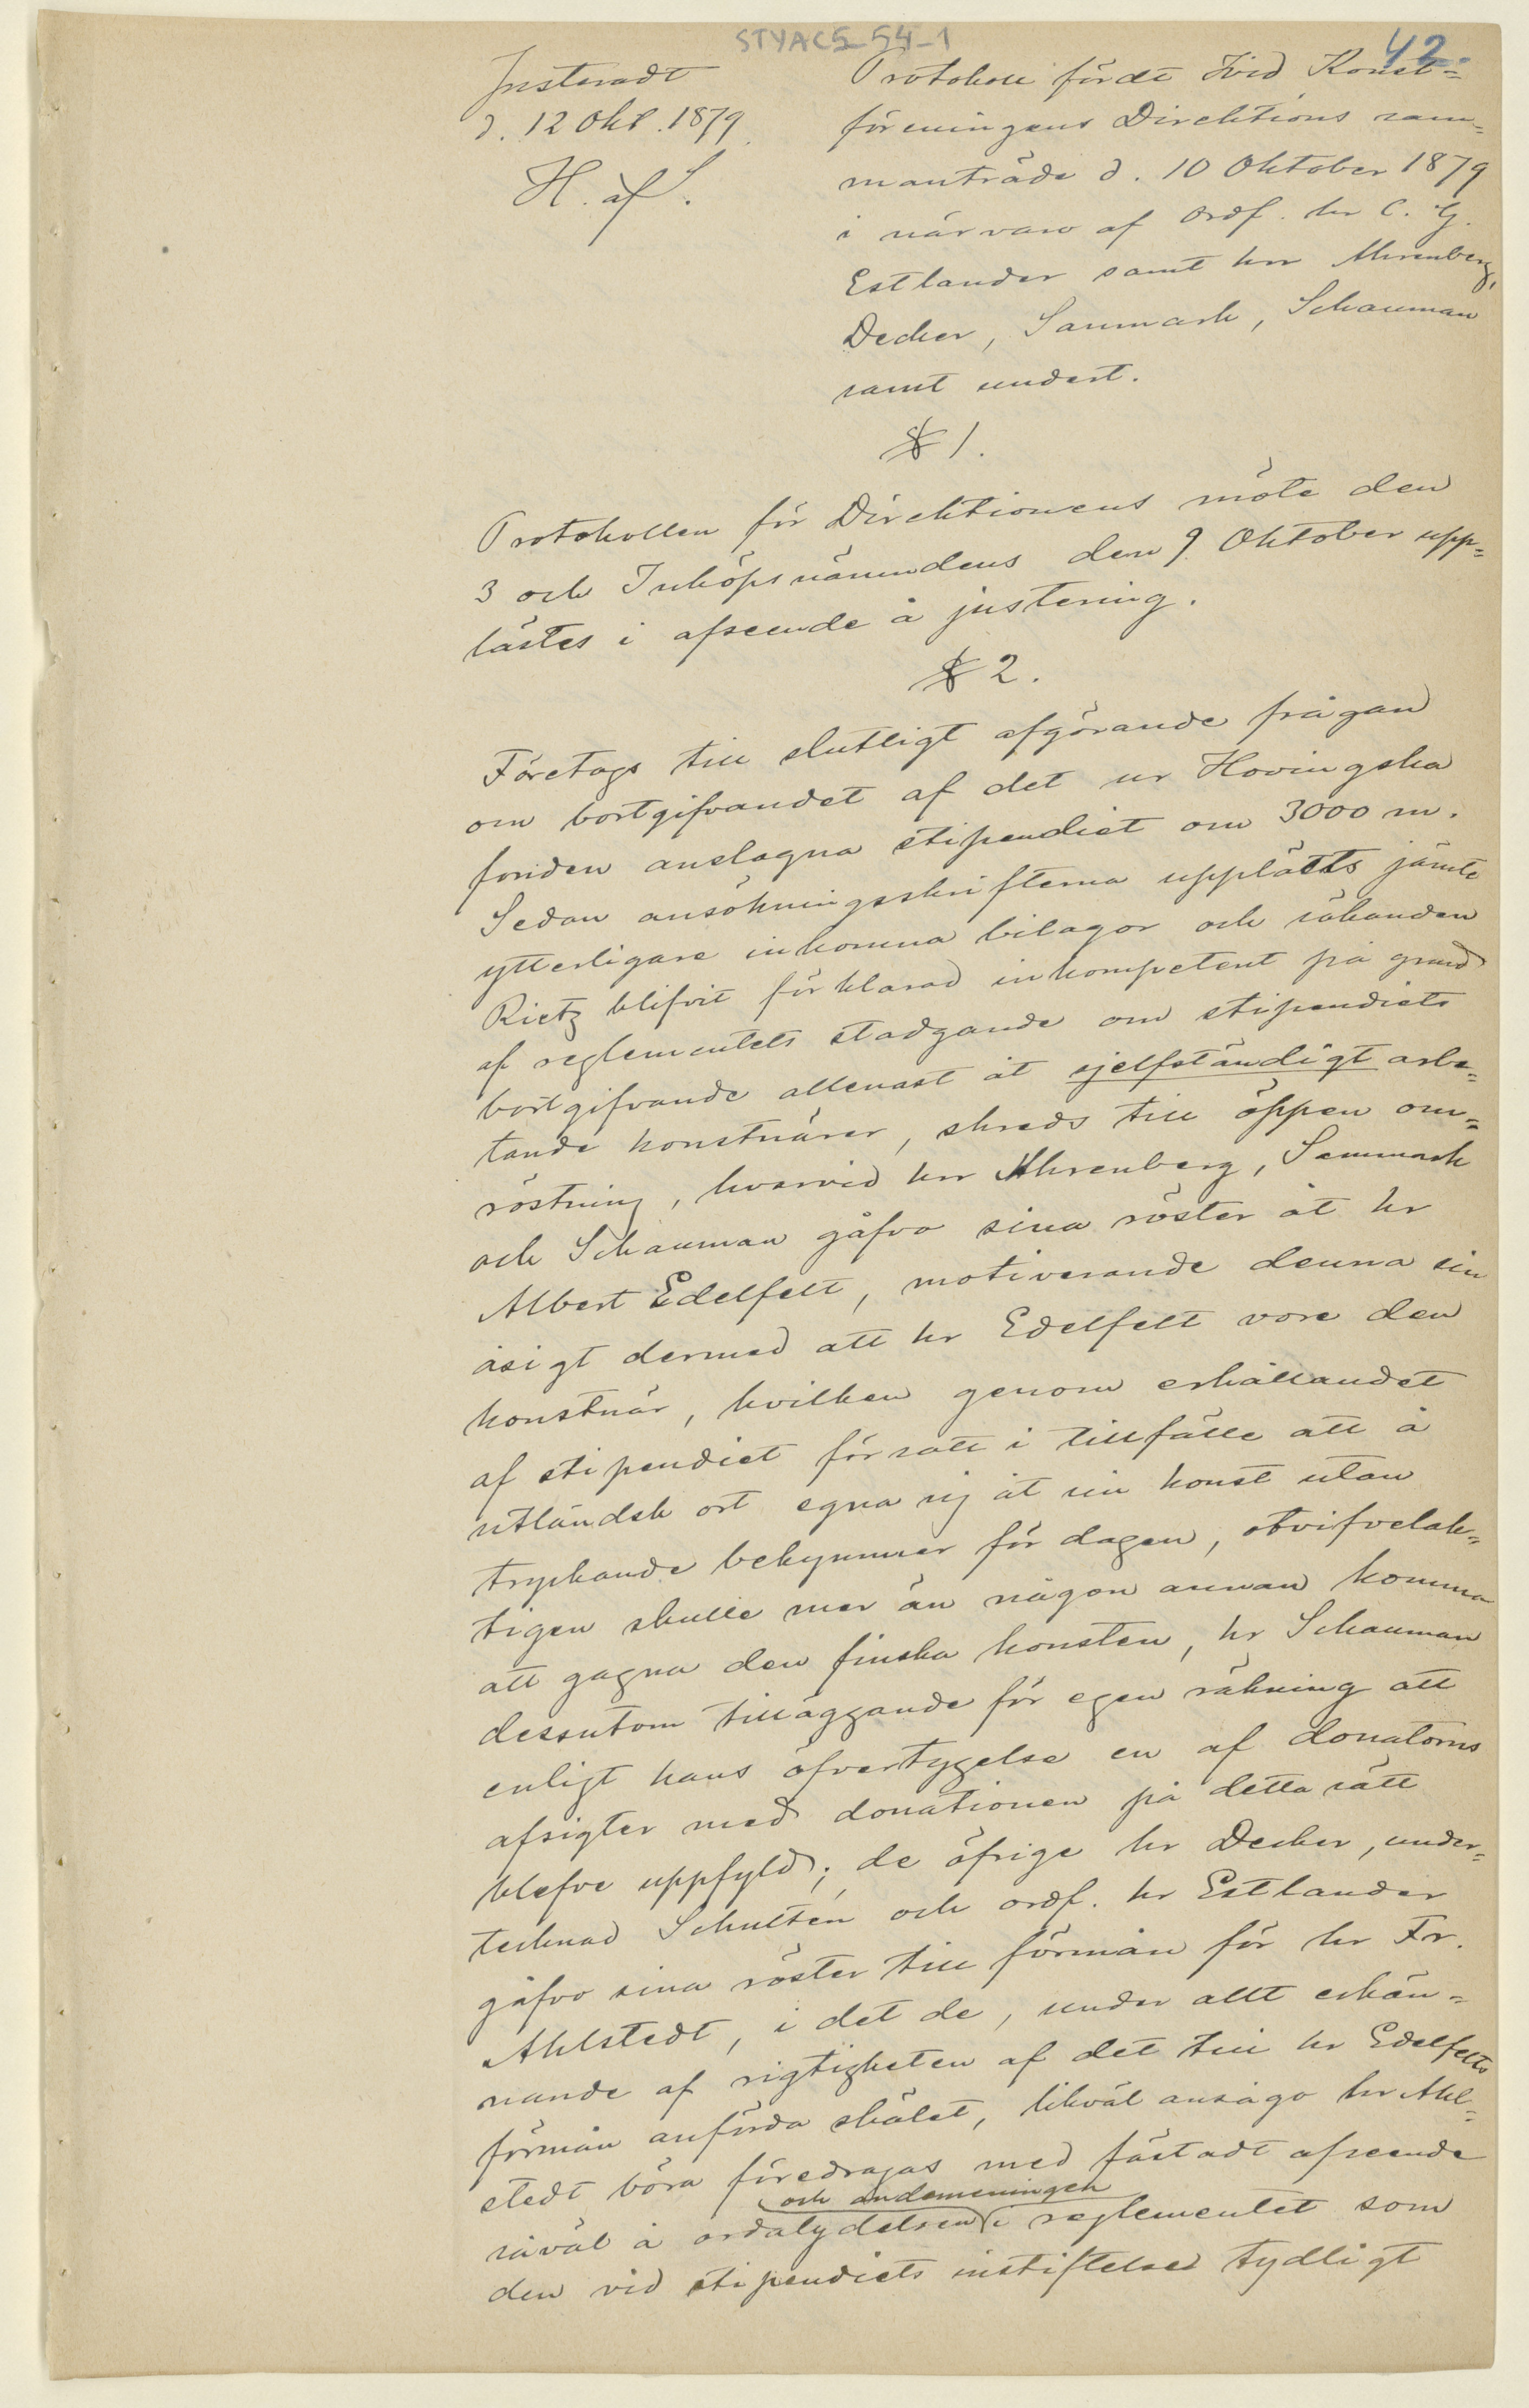 STYAC5-54-1
42.
Justeradt
d. 12 Okt. 1879.
H. af S.
Protokoll fördt vid Konst=
föreningens Direktions sam=
manträde d. 10 Oktober 1879
i närvaro af ordf. hr C. G.
Estlander samt hrr Ahrenberg,
Decker, Sanmark, Schauman
samt undert.
§ 1.
Protokollen för Direktionens möte den
3 och Inköpsnämndens den 9 Oktober upp=
lästes i afseende å justering.
§ 2.
Företogs till slutligt afgörande frågan
om bortgifvandet af det ur Hovingska
fonden anslagna stipendiet om 3000 m.
Sedan ansökningsskrifterna upplästs jämte
ytterligare inkomna bilagor och sökanden
Rietz blifvit förklarad inkompetent på grund
af reglementets stadgande om stipendiets
bortgifvande allenast åt sjelfständigt arbe=
tande konstnärer, skreds till öppen om=
röstning, hvarvid hrr Ahrenberg, Sanmark
och Schauman gåfvo sina röster åt hr
Albert Edelfelt, motiverande denna sin
åsigt dermed att hr Edelfelt vore den
konstnär, hvilken genom erhållandet
af stipendiet försatt i tillfälle att å
utländsk ort egna sig åt sin konst utan
tryckande bekymmer för dagen, otvifvelak=
tigen skulle mer än någon annan komma
att gagna den finska konsten, hr Schauman
dessutom tilläggande för egen räkning att
enligt hans öfvertygelse en af donatorns
afsigter med donationen på detta sätt
blefve uppfyld; de öfrige hr Decker, under=
tecknad Schultén och ordf. hr Estlander
gåfvo sina röster till förmån för hr Fr.
Ahlstedt, i det de, under allt erkän=
nande af rigtigheten af det till hr Edelfelts
förmån anförda skälet, likväl ansågo hr Ahl=
stedt böra föredragas med fästadt afseende
och andemeningen
såväl å ordalydelsen i reglementet som
den vid stipendiets instiftelse tydligt